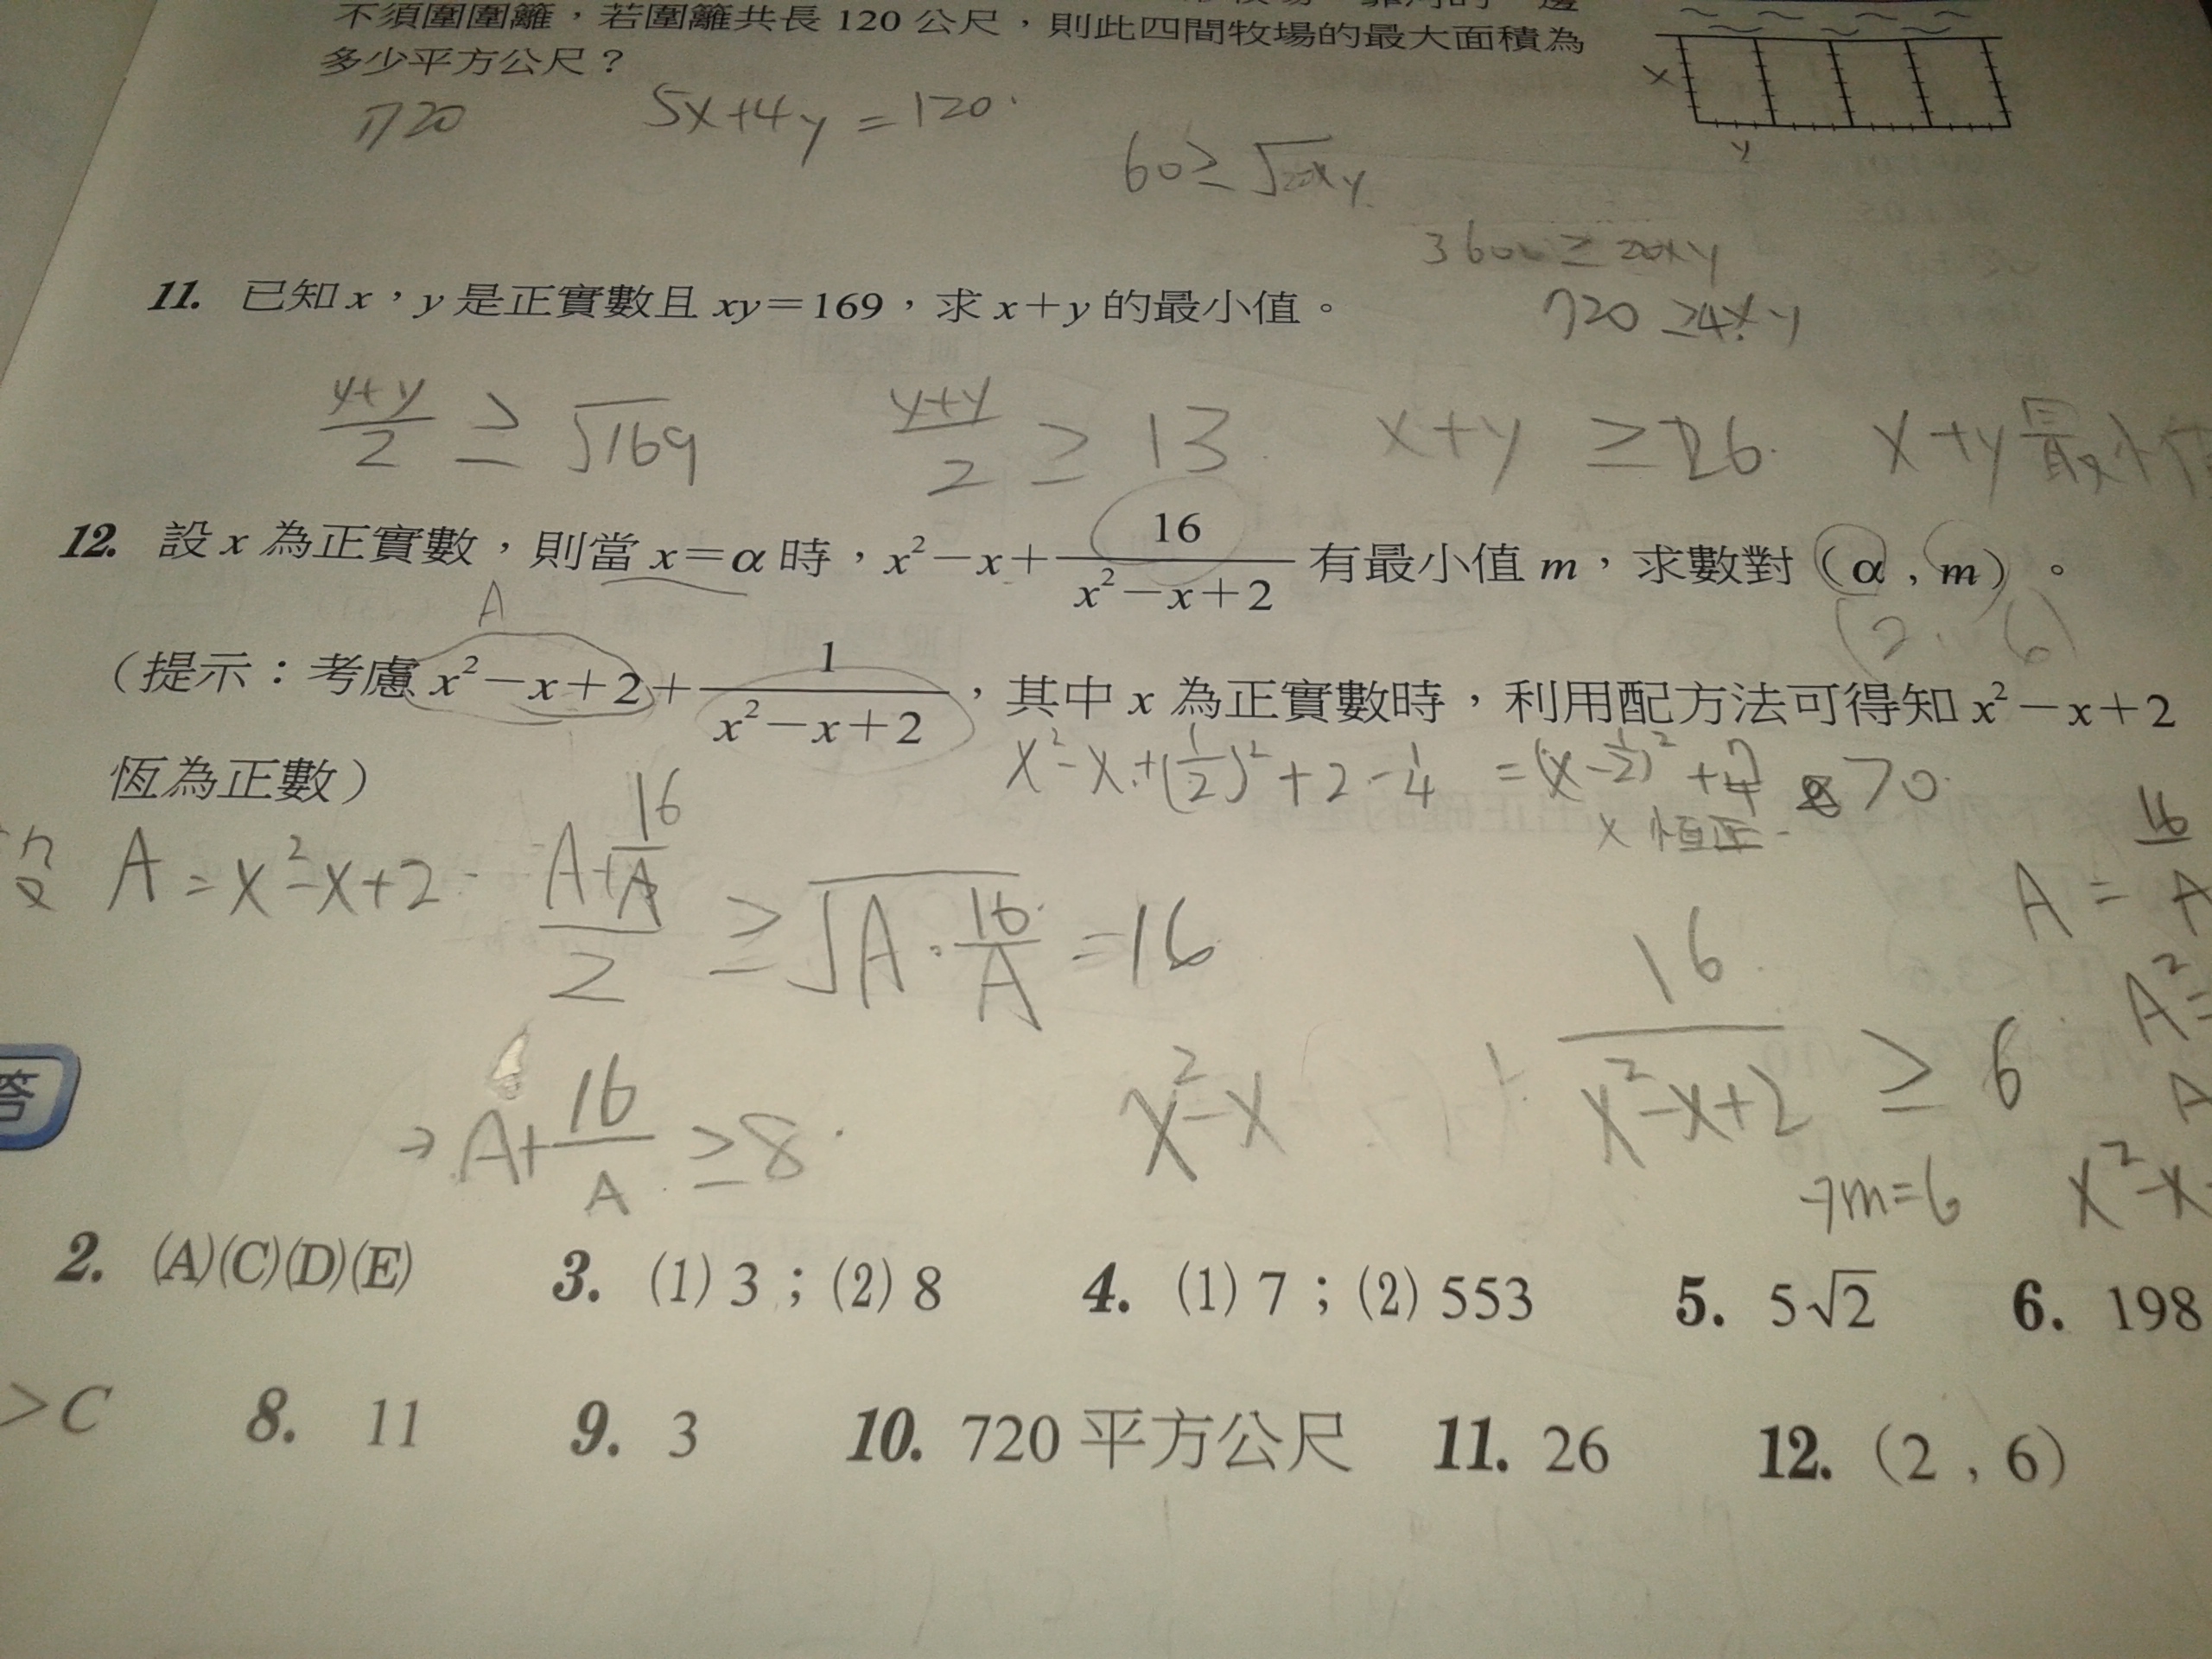 不須圍圍籬，若圍籬共長 120 公尺，則此四間牧場的最大面積為
多少平方公尺？
x
y
720
5x+4y=120
60≥√20xy
3600≥20xy
720≥4xy
11. 已知 x，y 是正實數且 xy＝169，求 x＋y 的最小值。
≥√169
≥13
x+y≥26
x+y最小
12. 設 x 為正實數，則當 x＝α 時，x²－x＋16/(x²－x＋2) 有最小值 m，求數對（α , m）。
(2, 6)
A
（提示：考慮 x²－x＋2＋1/(x²－x＋2)，其中 x 為正實數時，利用配方法可得知 x²－x＋2
恆為正數）
x²-x+(1/2)²+2-1/4=(x-1/2)²+7/4 >0
x 恒正
A=x²-x+2
(A+16/A)/2≥√A·16/A=16
A=16/A
A²=
A
→A+16/A≥8
x²-x+16/(x²-x+2)≥6
→m=6
x²-x
答
2. (A)(C)(D)(E) 3. (1) 3；(2) 8 4. (1) 7；(2) 553 5. 5√2 6. 198
>C 8. 11 9. 3 10. 720 平方公尺 11. 26 12. (2 , 6)